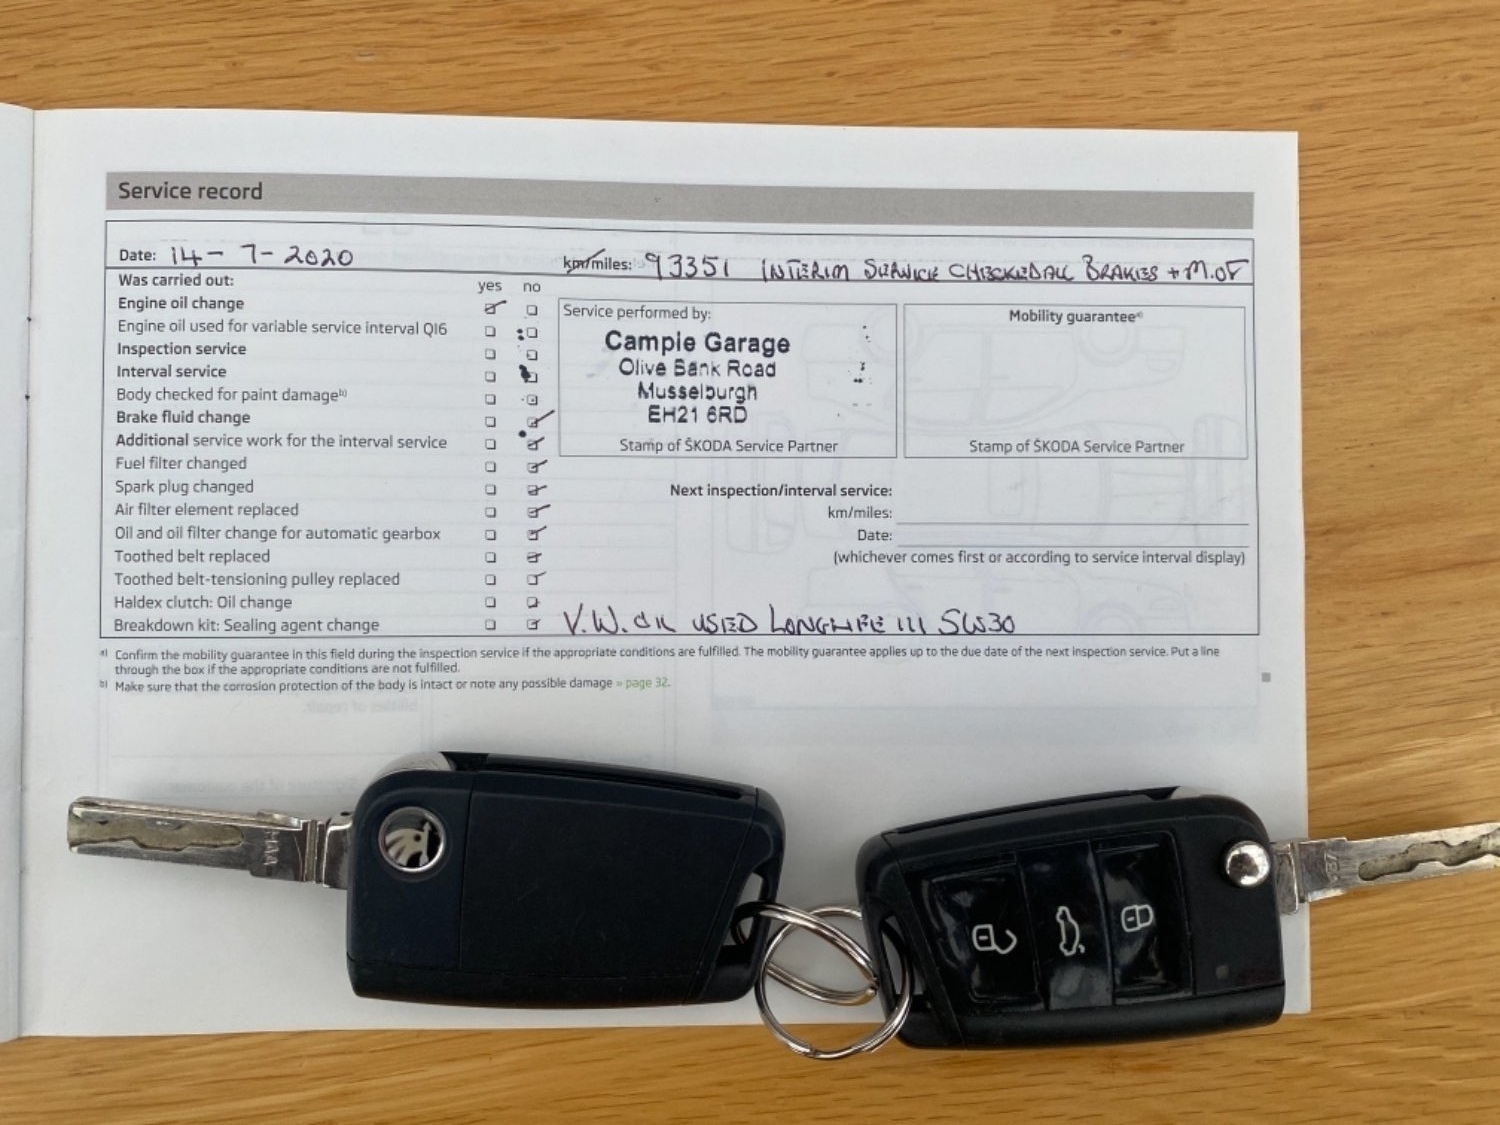 Service record
Date: 14-7-2020
km/miles: 93351 INTERIM SERVICE CHECKED ALL BRAKES + M.OT
Was carried out:
yes no
Engine oil change
Engine oil used for variable service interval QI6
Inspection service
Interval service
Body checked for paint damage b)
Brake fluid change
Additional service work for the interval service
Fuel filter changed
Spark plug changed
Air filter element replaced
Oil and oil filter change for automatic gearbox
Toothed belt replaced
Toothed belt-tensioning pulley replaced
Haldex clutch: Oil change
Breakdown kit: Sealing agent change
Service performed by:
Campie Garage
Olive Bank Road
Musselburgh
EH21 6RD
Stamp of ŠKODA Service Partner
Mobility guarantee a)
Stamp of ŠKODA Service Partner
Next inspection/interval service:
km/miles:
Date:
(whichever comes first or according to service interval display)
V.W. OIL USED LONGLIFE III 5W30
a) Confirm the mobility guarantee in this field during the inspection service if the appropriate conditions are fulfilled. The mobility guarantee applies up to the due date of the next inspection service. Put a line
through the box if the appropriate conditions are not fulfilled.
b) Make sure that the corrosion protection of the body is intact or note any possible damage » page 32.
HAA